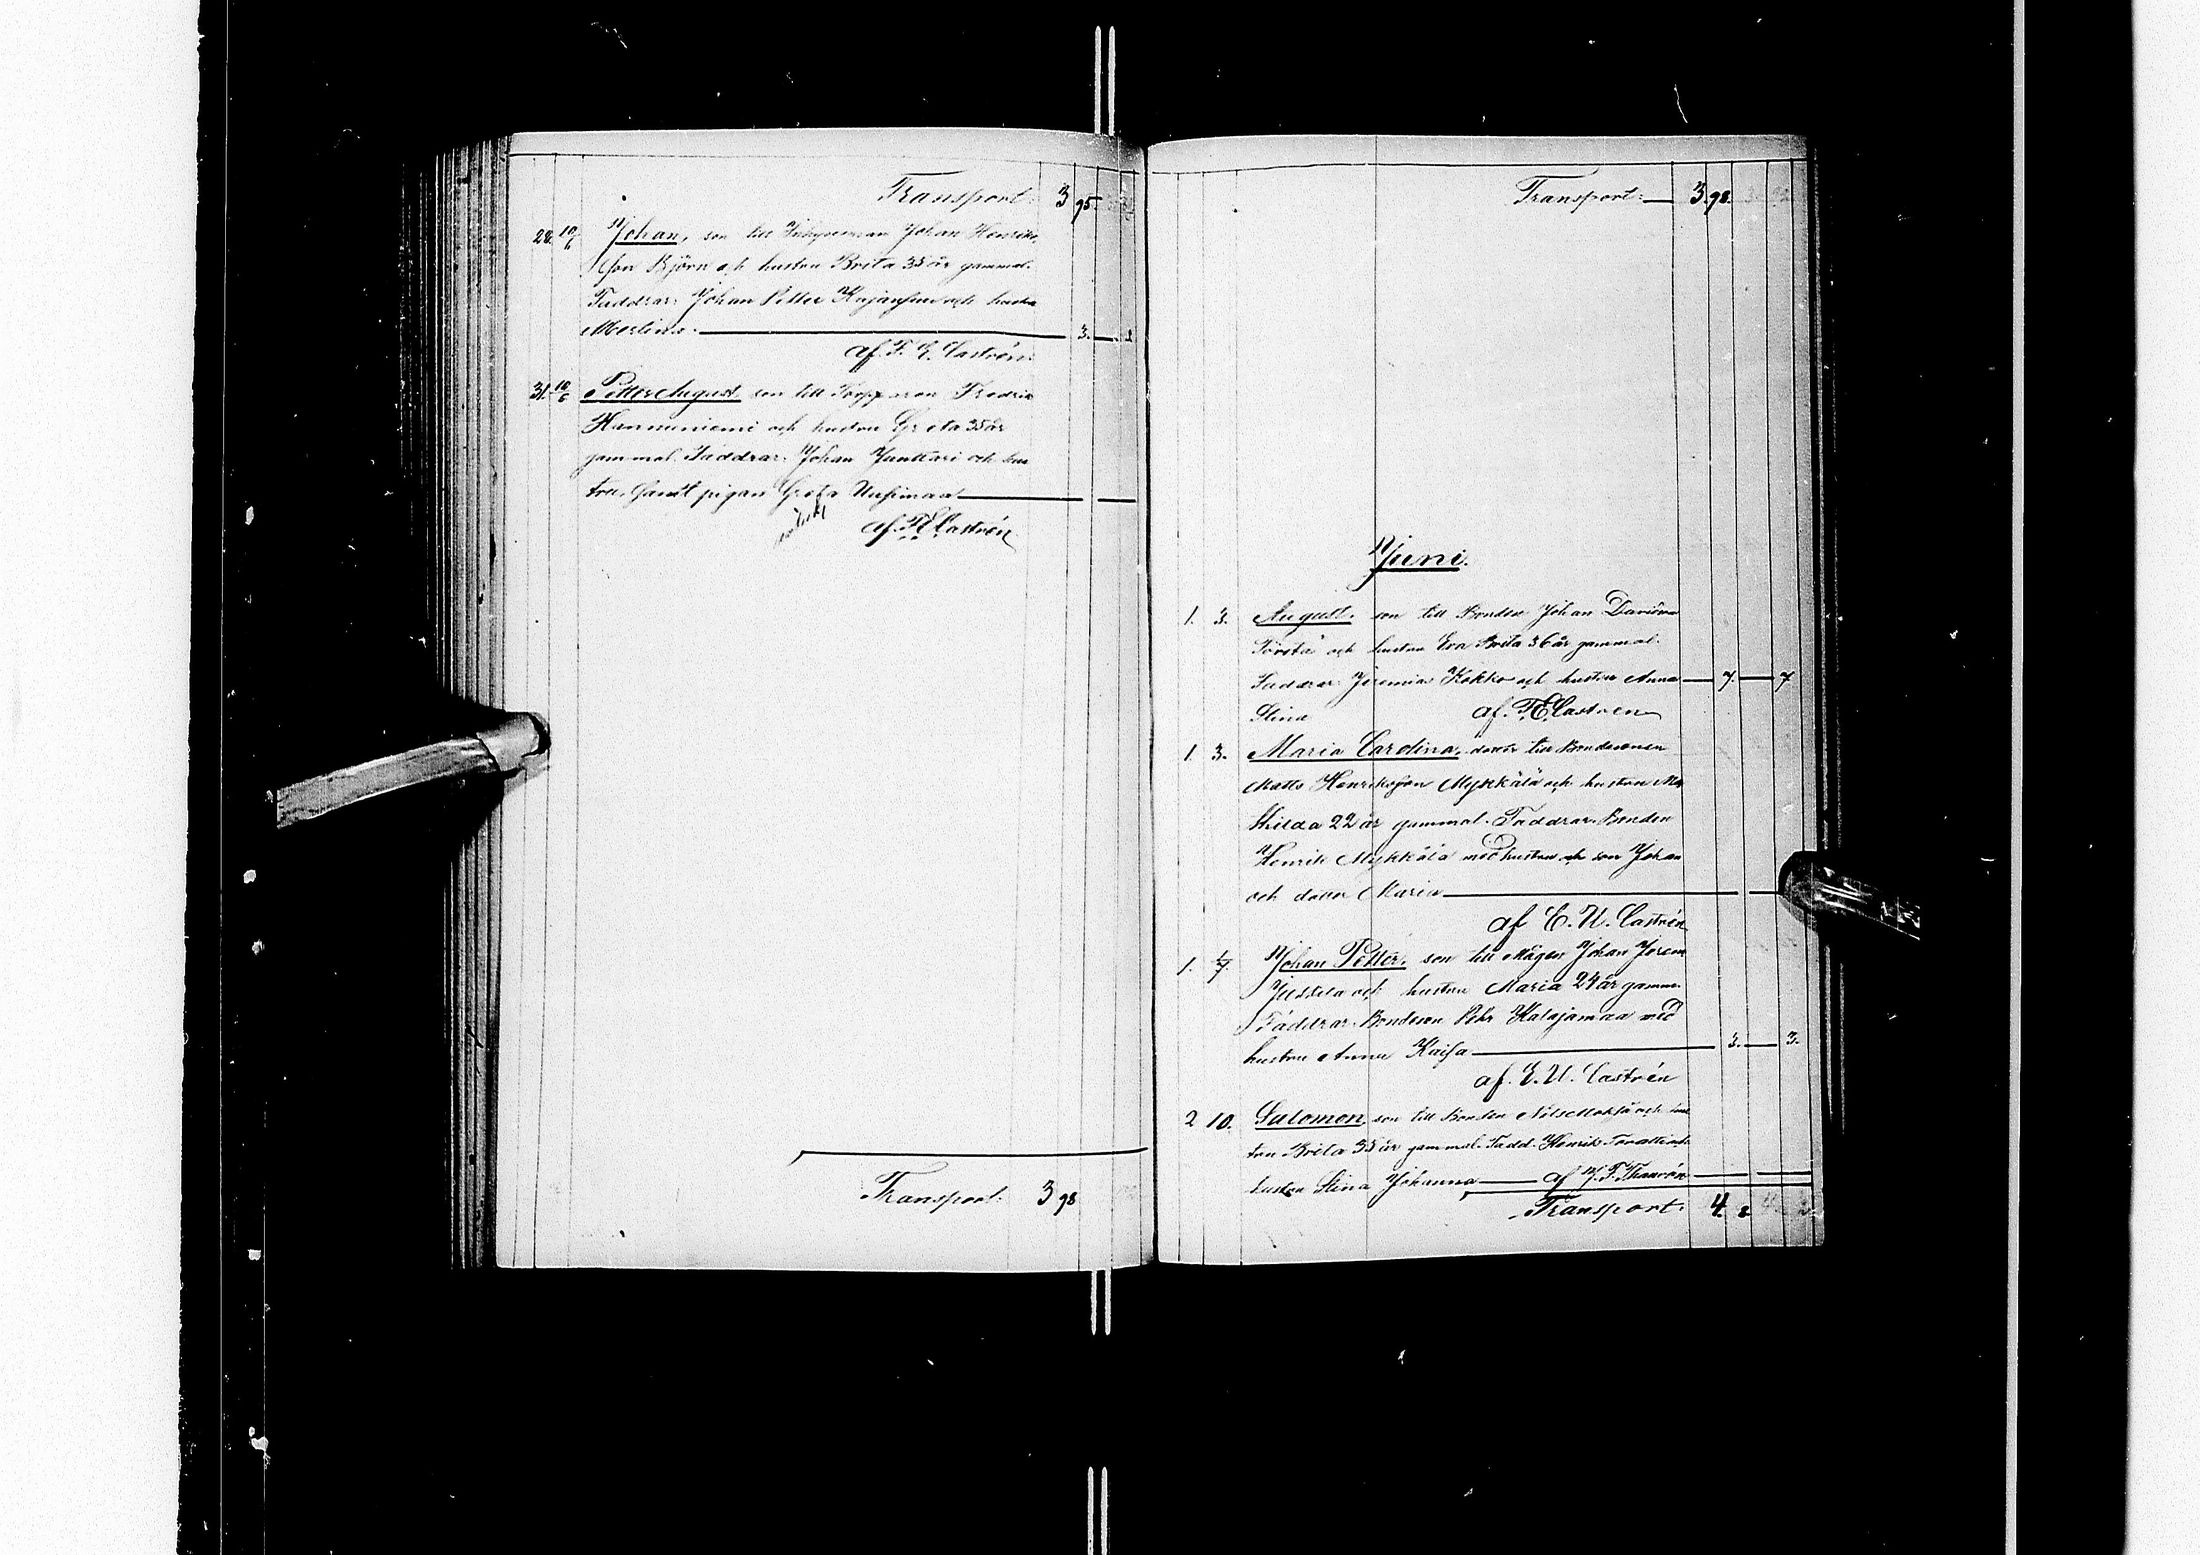 Transport: 3 95.
28. 10/6 Johan, son till Inhysesman Johan Henriks
son Björn och hustru Brita 35 år gammal.
Faddrar: Johan Petter Kajansuu och hustru
3.
af. F. E. Castrén.
31. 10/6 Petter August son till Torpparen Fredrik
Hannuniemi och hustru Greta 35 år
gammal. Faddrar. Johan Junttari och hus
tru, samt pigan Greta Uusimaa
af. F E Castrén
Transport. 3 98
Transport: 3. 98.
Juni.
1. 3. August, son till Bonden Johan
och hustru Eva Brita 36 år gammal.
Faddrar Jeremias Kokko och hustru Anna 7. 7
Stina af. F. E. Castren
1. 3. Maria Carolina, dotter till Bondesonen
Matts Henriksson Mykkälä och hustru Ma
thilda 22 år gammal. Faddrar. Bonden
Henrik Mykkälä med hustru och son Johan
och dotter Maria
af E. U. Castrén
1. Johan Petter, son till Mågen Johan Jerem
och hustru Maria 24 år gamm.
Faddrar. Bondeson Pehr Kalajamaa med
hustru Anna Kaisa 3. 3.
af. E. U. Castrén
2 10. Salomon, son till Bonden Nils och hus
tru Brita 35 år gammal. Fadd. Henrik
hustru Stina Johanna af J. F. Thaurén
Transport: 4. 2